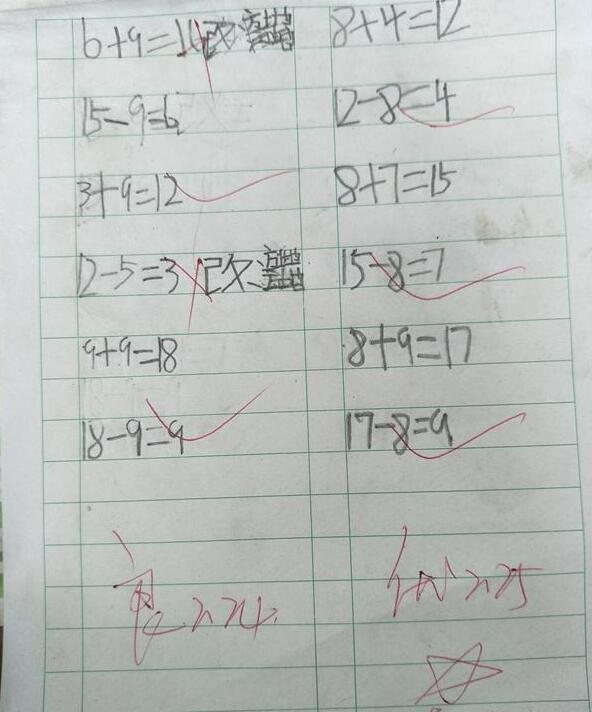 6+9=16 改 8+4=12
15-9=6 12-8=4
3+9=12 8+7=15
12-5=3 改 15-8=7
9+9=18 8+9=17
18-9=9 17-8=9